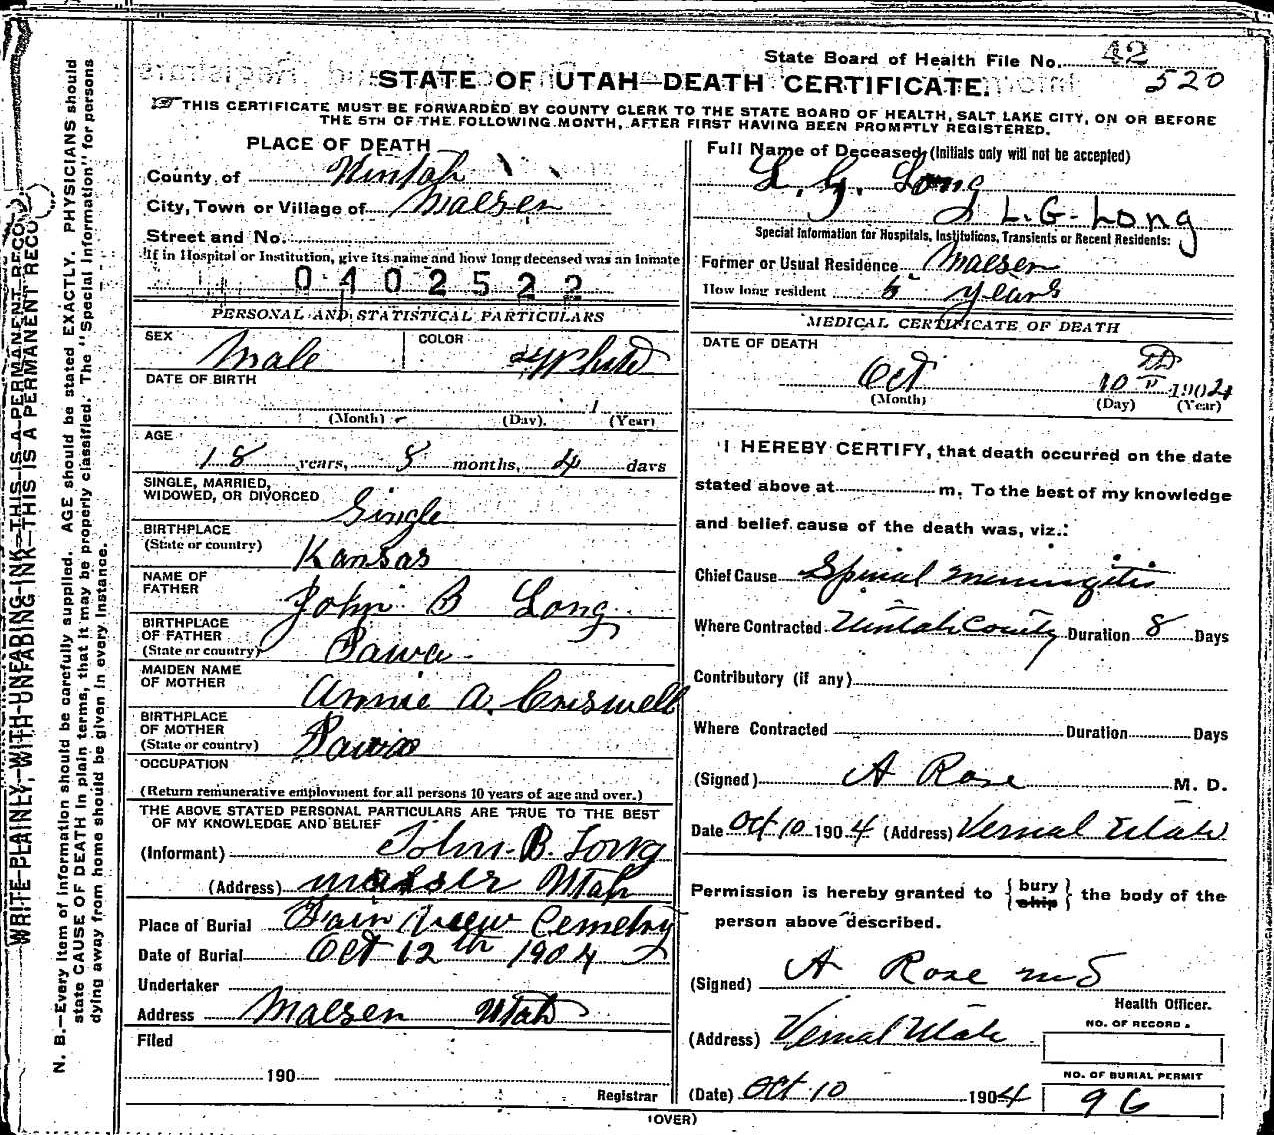 State Board of Health File No. 42
520
STATE OF UTAH—DEATH CERTIFICATE.
THIS CERTIFICATE MUST BE FORWARDED BY COUNTY CLERK TO THE STATE BOARD OF HEALTH, SALT LAKE CITY, ON OR BEFORE
THE 5TH OF THE FOLLOWING MONTH, AFTER FIRST HAVING BEEN PROMPTLY REGISTERED.
PLACE OF DEATH
County of Uintah
City, Town or Village of Maeser
Street and No.
If in Hospital or Institution, give its name and how long deceased was an Inmate
0402522
PERSONAL AND STATISTICAL PARTICULARS
SEX Male COLOR White
DATE OF BIRTH
1
(Month) (Day). (Year)
AGE
18 years, 8 months, 4 days
SINGLE, MARRIED,
WIDOWED, OR DIVORCED Single
BIRTHPLACE
(State or country) Kansas
NAME OF
FATHER John B Long
BIRTHPLACE
OF FATHER
(State or country)
MAIDEN NAME
OF MOTHER Annie A. Criswell
BIRTHPLACE
OF MOTHER
(State or country)
OCCUPATION
(Return remunerative employment for all persons 10 years of age and over.)
THE ABOVE STATED PERSONAL PARTICULARS ARE TRUE TO THE BEST
OF MY KNOWLEDGE AND BELIEF
(Informant) John B. Long
(Address) Maeser Utah
Place of Burial Fair View Cemetry
Date of Burial Oct 12th 1904
Undertaker
Address Maeser Utah
Filed
190
Registrar
Full Name of Deceased (Initials only will not be accepted)
L. G. Long
L.G-Long
Special Information for Hospitals, Institutions, Transients or Recent Residents:
Former or Usual Residence Maeser
How long resident 5 years
MEDICAL CERTIFICATE OF DEATH
DATE OF DEATH
Oct 10 1904
(Month) (Day) (Year)
I HEREBY CERTIFY, that death occurred on the date
stated above at m. To the best of my knowledge
and belief cause of the death was, viz.:
Chief Cause Spinal meningitis
Where Contracted Uintah County Duration 8 Days
Contributory (if any)
Where Contracted Duration Days
(Signed) A Rose M. D.
Date Oct 10 1904 (Address) Vernal Utah
Permission is hereby granted to {bury ship} the body of the
person above described.
(Signed) A Rose MD
Health Officer.
(Address) Vernal Utah
NO. OF RECORD.
NO. OF BURIAL PERMIT
(Date) Oct 10 1904 96
(OVER)
WRITE PLAINLY, WITH UNFADING INK—THIS IS A PERMANENT RECO
N. B.—Every item of information should be carefully supplied. AGE should be stated EXACTLY. PHYSICIANS should
state CAUSE OF DEATH in plain terms, that it may be properly classified. The "Special Information" for persons
dying away from home should be given in every instance.